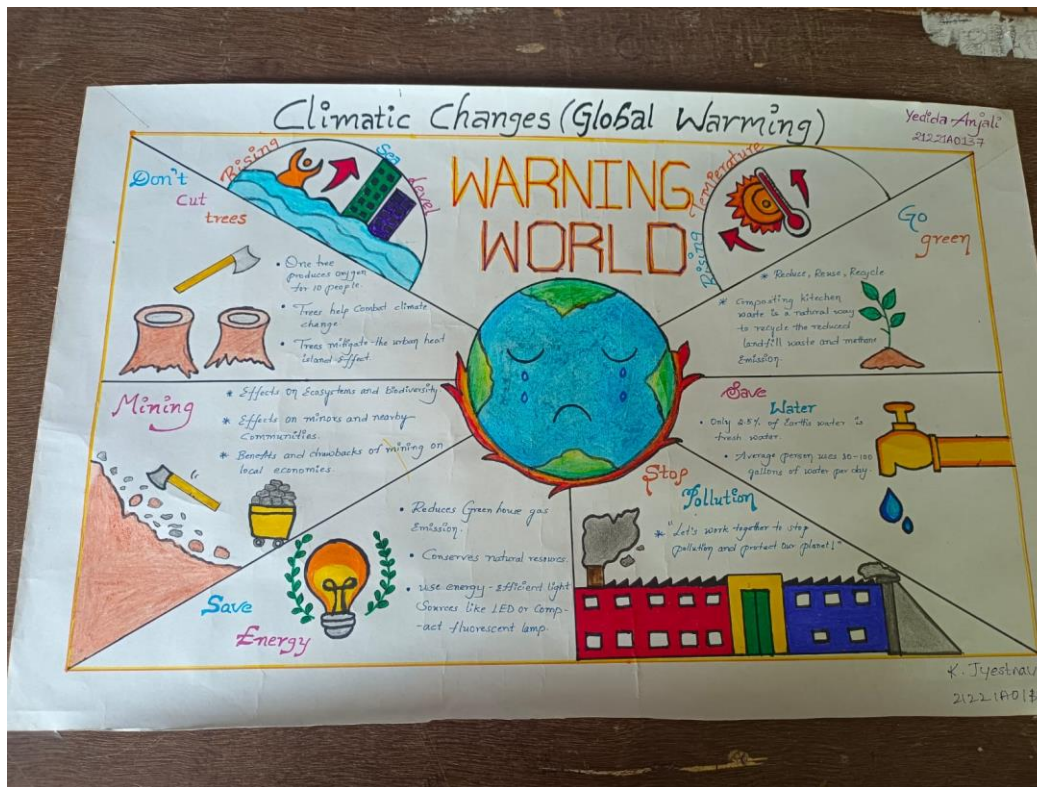 Climatic Changes (Global Warming)
Yedida Anjali
21221A0137
Don't
Cut
trees
Rising Sea level
WARNING
WORLD
Rising Temperature
Go
green
• One tree
produces oxygen
for 10 people.
• Trees help Combat climate
change.
• Trees mitigate the urban heat
island Effect.
* Reduce, Reuse, Recycle
* Composting kitchen
waste is a natural way
to recycle the reduced
landfill waste and methane
Emission.
Mining
* Effects on Ecosystems and biodiversity.
* Effects on minors and nearby
Communities.
* Benefits and drawbacks of mining on
local economies.
Save
Water
• Only 2.5% of Earth's water is
fresh water.
• Average person uses 80-100
gallons of water per day.
Save
Energy
• Reduces Green house gas
Emission.
• Conserves natural resources
• use energy-Efficient light
Sources like LED or Comp-
-act fluorescent lamp.
Stop
Pollution
* "Let's work together to stop
pollution and protect our planet!"
K.